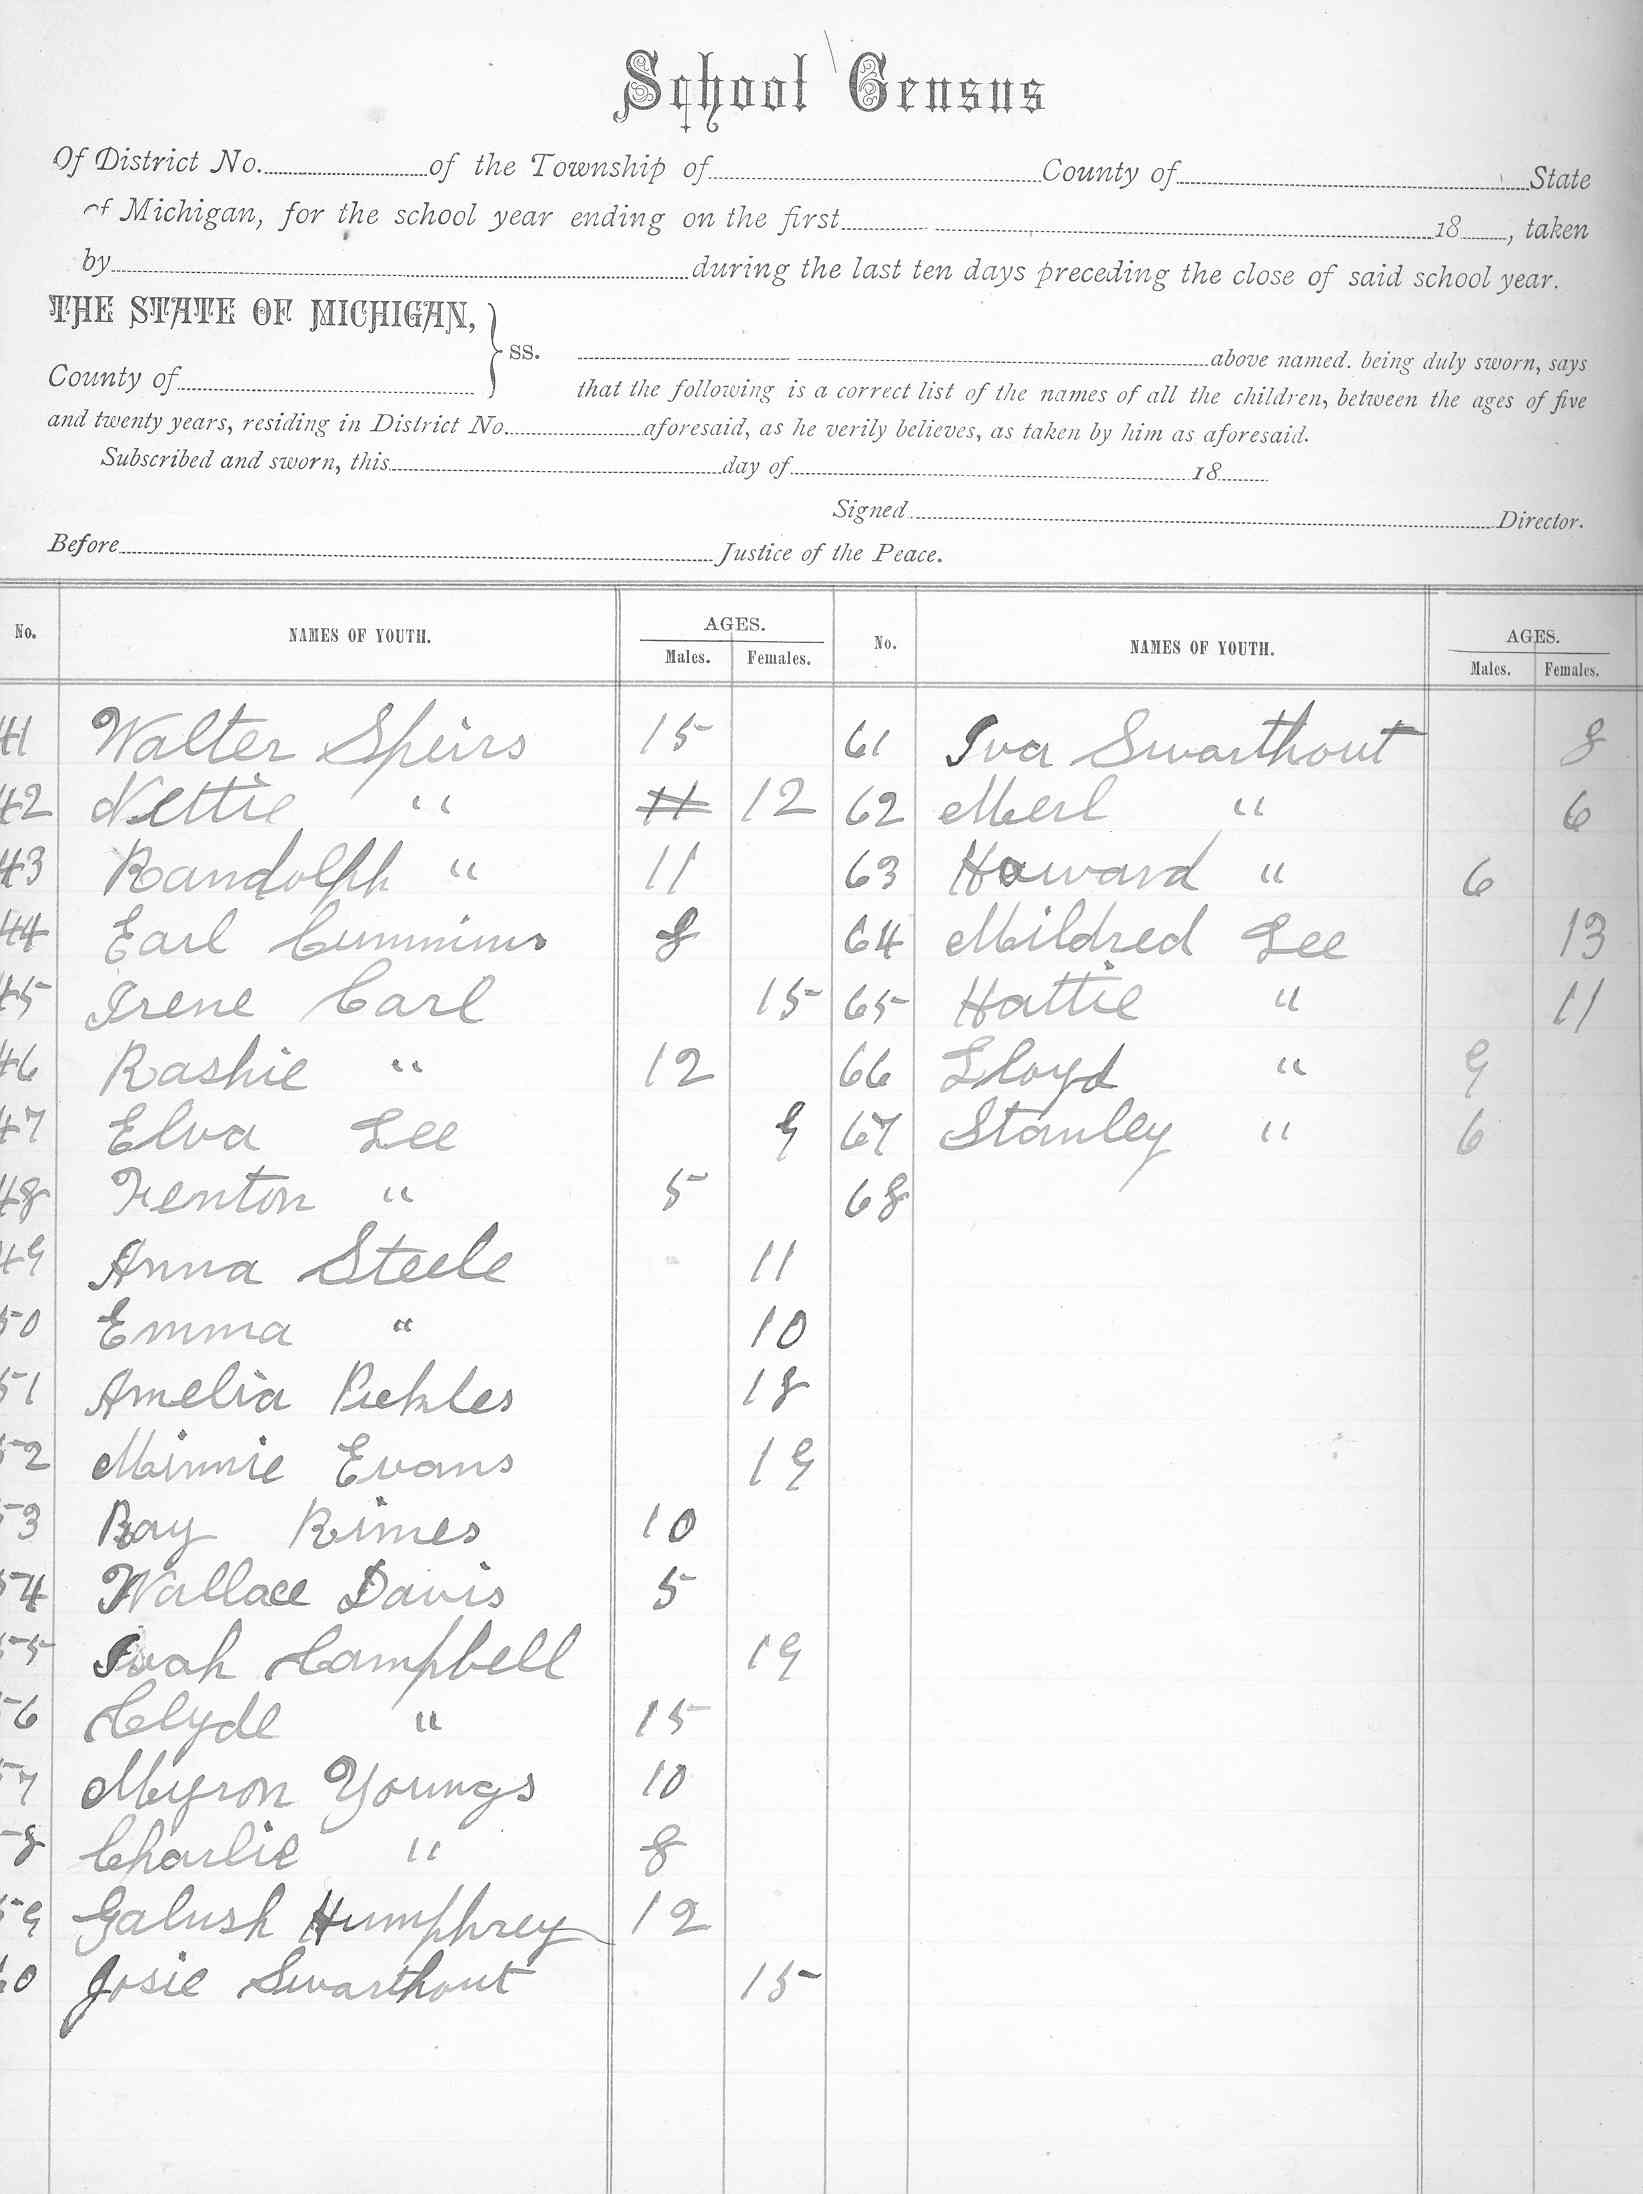 School Census
Of District No. of the Township of County of State
of Michigan, for the school year ending on the first 18 , taken
by during the last ten days preceding the close of said school year.
THE STATE OF MICHIGAN,
ss. above named. being duly sworn, says
County of
that the following is a correct list of the names of all the children, between the ages of five
and twenty years, residing in District No. aforesaid, as he verily believes, as taken by him as aforesaid.
Subscribed and sworn, this day of 18
Signed Director.
Before Justice of the Peace.
No. NAMES OF YOUTH. AGES. Males. Females. No. NAMES OF YOUTH. AGES. Males. Females.
41 Walter Speirs 15 61 Iva Swarthout 8
42 Nettie " 11 12 62 Merl " 6
43 Randolph " 11 63 Howard " 6
44 Earl Cummins 8 64 Mildred Lee 13
45 Irene Carl 15 65 Hattie " 11
46 Rashie " 12 66 Lloyd " 9
47 Elva Lee 9 67 Stanley " 6
48 Fenton " 5 68
49 Anna Steele 11
50 Emma " 10
51 Amelia Pickles 18
52 Minnie Evans 19
53 Ray Rimes 10
54 Wallace Davis 5
55 Ivah Campbell 19
56 Clyde " 15
57 Myron Youngs 10
58 Charlie " 8
59 Galush Humphrey 12
60 Josie Swarthout 15